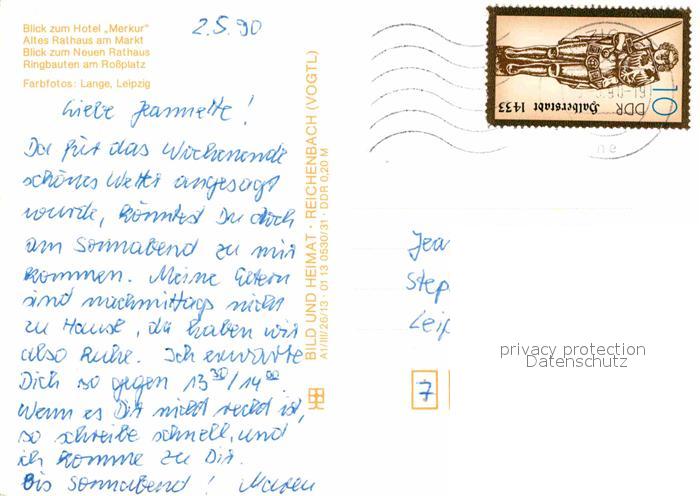 Blick zum Hotel „Merkur"
Altes Rathaus am Markt
Blick zum Neuen Rathaus
Ringbauten am Roßplatz
Farbfotos: Lange, Leipzig
2.5.90
Liebe Jeannette!
Da für das Wochenende
schönes Wetter angesagt
wurde, könntest Du doch
am Sonnabend zu mir
kommen. Meine Eltern
sind nachmittags nicht
zu Hause, da haben wir
also Ruhe. Ich erwarte
Dich so gegen 13³⁰/14⁰⁰.
Wenn es Dir nicht recht ist,
so schreibe schnell, und
ich komme zu Dir.
Bis Sonnabend! Maren
BILD UND HEIMAT · REICHENBACH (VOGTL)
A1/III/26/13 · 01 13 0530/31 · DDR 0,20 M
10
DDR
Halberstadt 1433
Jea
Step
Leip
7
privacy protection
Datenschutz